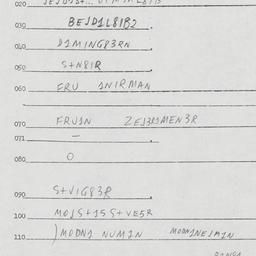 020
030 BEJD1L8IB2
040 D1MING83RN
050 S+N8IR
060 FRU 1NIRMAN
070 FRU1N ZEJ3R1MEN3R
071 –
080 O
090 S+VIG83R
100 MOJS+15S+VE5R
110 )MODN1 NUM1N MODN1NEJM1N